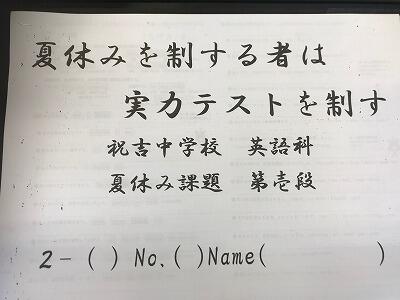 夏休みを制する者は
実力テストを制す
祝吉中学校 英語科
夏休み課題 第壱段
2-( ) No.( )Name( )